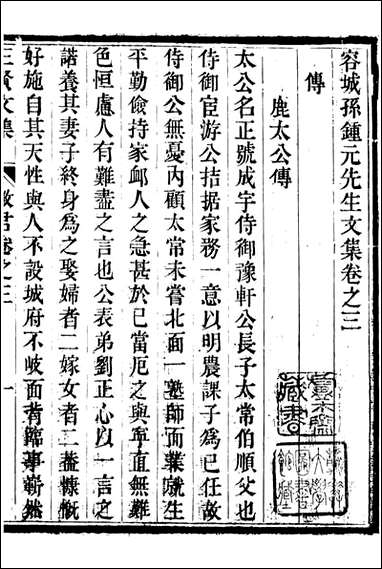 容城孫鍾元先生文集卷之三
傳
鹿太公傳
太公名正號成宇侍御豫軒公長子太常伯順父也
侍御宦游公拮据家務一意以明農課子為已任故
侍御公無憂內顧太常未嘗北面一塾師而業就生
平勤儉持家卹人之急甚於已當厄之與寧直無難
色恒慮人有難盡之言也公表弟劉正心以一言之
諾養其妻子終身為之娶婦者二嫁女者二葢慷慨
好施自其天性與人不設城府不岐面背臨事嶄然
三賢文集
徵君卷之三
一
藏書